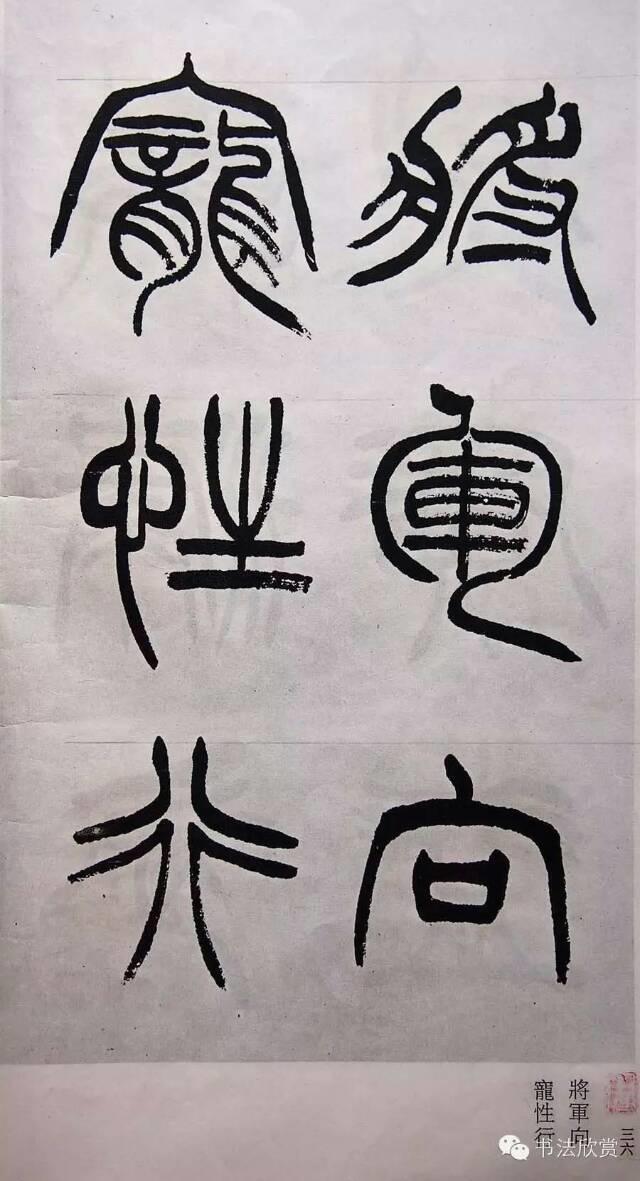 將軍向
寵性行
將軍向
寵性行
三六
书法欣赏